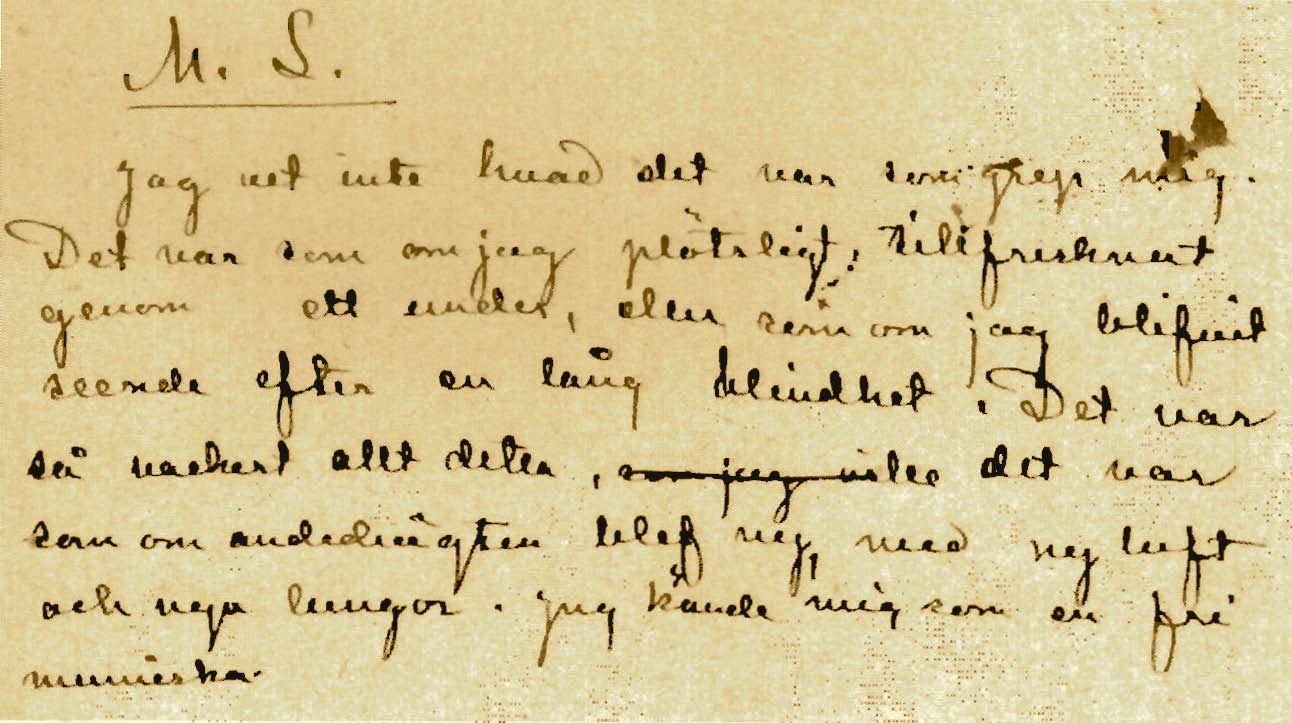 M. S.
Jag vet inte hvad det var som grep mig.
Det var som om jag plötsligt, tillfrisknat
genom ett under, eller som om jag blifvit
seende efter en lång blindhet. Det var
så vackert allt detta, det var
som om andedrägten blef ny, med ny luft
och nya lungor. Jag kände mig som en fri
menniska.